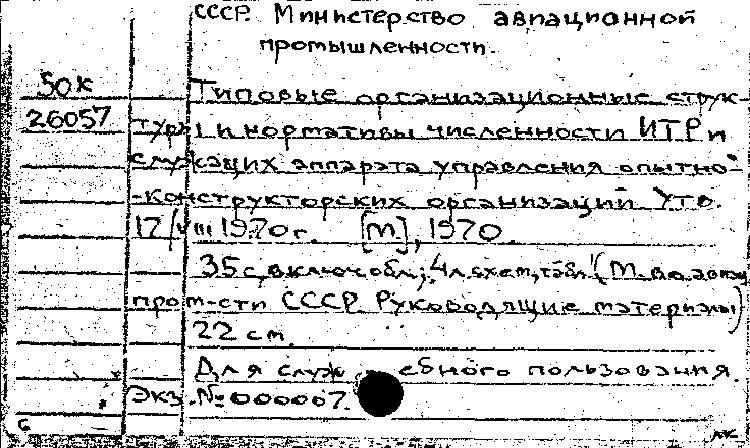 СССР. Министерство авиационной
промышленности.
50к
26057
Типовые организационные струк-
туры и нормативы численности ИТР и
служащих аппарата управления опытно-
-конструкторских организаций Утв.
17/VIII 1970г. [М], 1970.
35 с, включ обл; 4 л схем, табл (М-во авиац
пром-сти СССР. Руководящие материалы)
22 см.
Для служебного пользования.
Экз. № 000007.